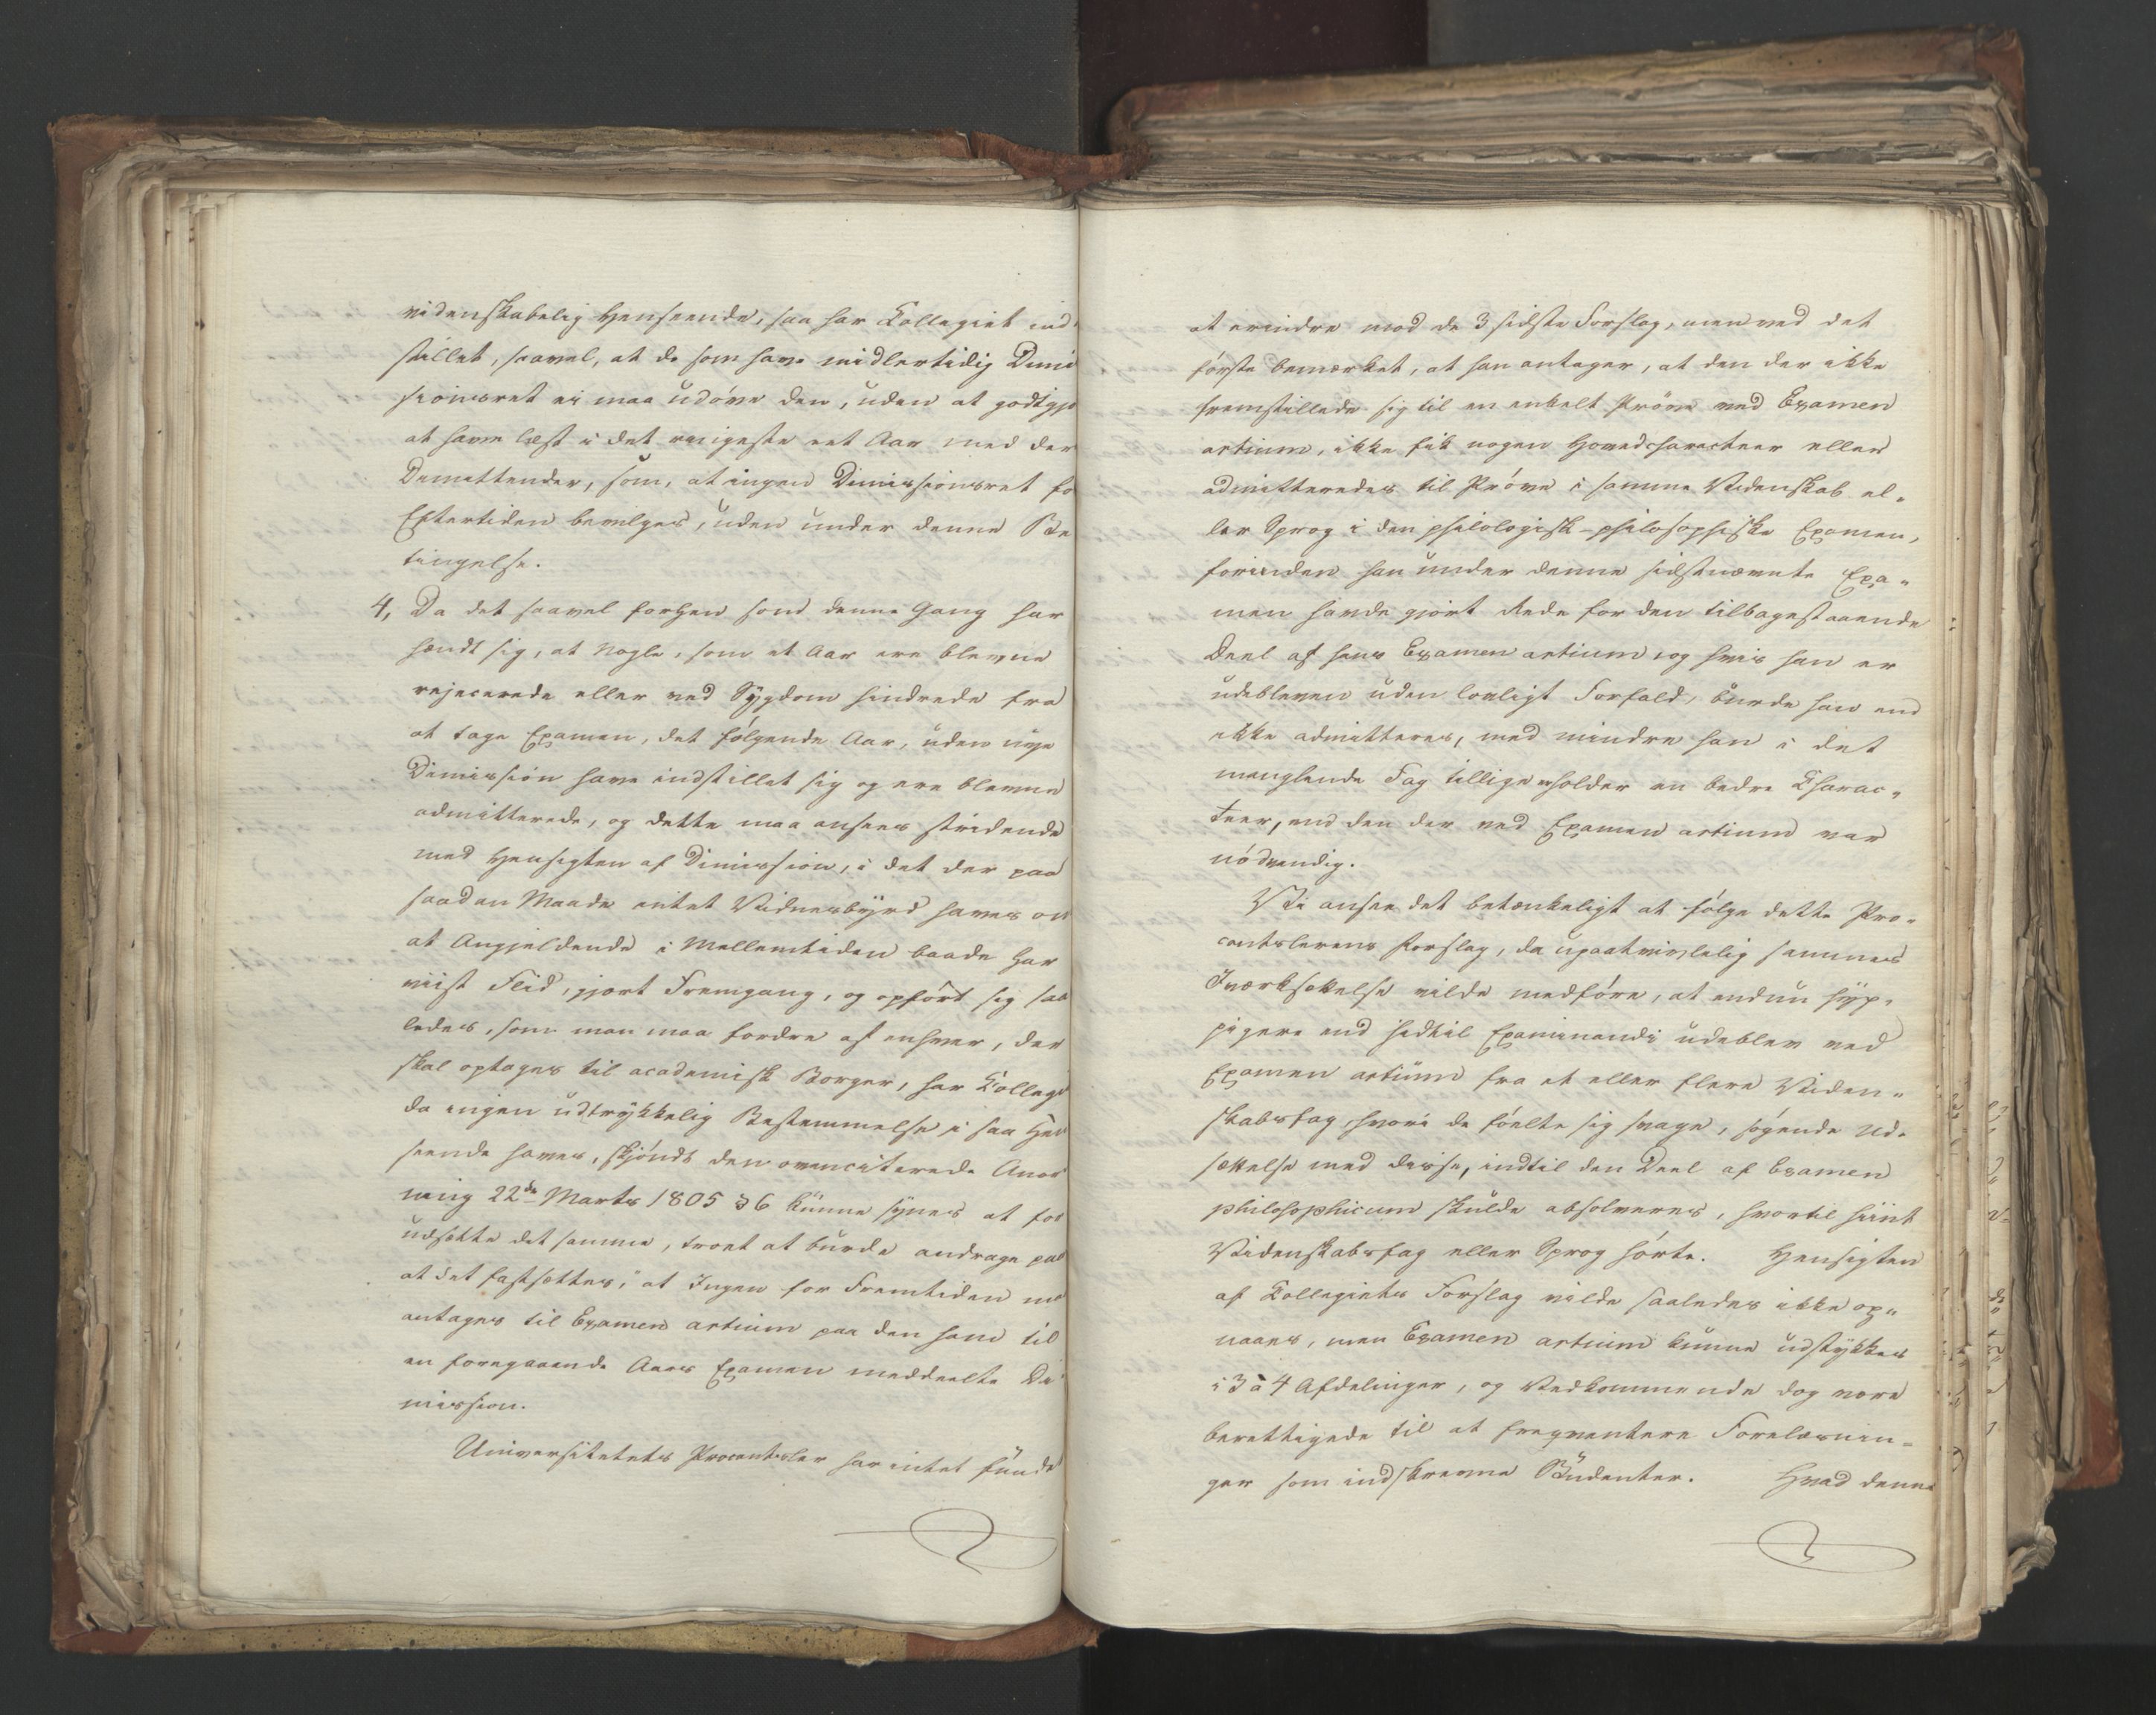 videnskabelig Henseende, saa har Collegiet ind
stillet, saavel, at de som have midlertidig Dimis
sionsret ei maa udøve den, uden at godtgjø
at have læst i det ringeste eet Aar med der
Demittender, som, at ingen Dimissionsret fo
Eftertiden bevilges, uden under denne Be
tingelse.
4, Da det saavel forhen som denne Gang har
hændt sig, at Nogle, som et Aar ere blevne
rejicerede eller ved Sygdom hindrede fra
at tage Examen, det følgende Aar, uden nye
Dimission have indstillet sig og ere blevne
admitterede, og dette maa ansees stridende
med Hensigten af Dimission, i det der paa
saadan Maade intet Vidnesbyrd haves om
at Angjeldende i Mellemtiden baade har
viist Flid, gjort Fremgang, og opført sig saa
ledes, som man maa fordre af enhver, der
skal optages til academisk Borger, har Colleg
da ingen udtrykkelig Bestemmelse i saa Hen
seende haves, skjøndt den ovenciterede Anor
ning 22de Marts 1805 § 6 kunne synes at for
udsætte det samme, troet at burde andrage paa
at det fastsættes, "at Ingen for Fremtiden maa
antages til Examen artium paa den ham til
en foregaaende Aars Examen meddeelte Di
mission.
Universitetets Procantsler har intet fundet
at erindre mod de 3 sidste Forslag, men ved det
første bemærket, at han antager, at den der ikke
fremstillede sig til en enkelt Prøve ved Examen
artium, ikke fik nogen Hovedcharacteer eller
admitteredes til Prøve i samme Videnskab el-
ler Sprog i den philologisk-philosophiske Examen,
forinden han under denne sidstnævnte Exa-
men havde gjort Rede for den tilbagestaaende
Deel af hans Examen artium, og hvis han er
udebleven uden lovligt Forfald, burde han end
ikke admitteres, med mindre han i det
manglende Fag tillige erholder en bedre Charac-
teer, end den der ved Examen artium var
nødvendig.
Vi ansee det betænkeligt at følge dette Pro-
cantslerens Forslag, da upaatvivlelig sammes
Iværksættelse vilde medføre, at endnu hyp-
pigere end hidtil Examinandi udeblev ved
Examen artium fra et eller flere Viden-
skabsfag, hvori de følte sig svage, søgende Ud-
sættelse med disse, indtil den Deel af Examen
philosophicum skulde absolveres, hvortil hiint
Videnskabsfag eller Sprog hørte. Hensigten
af Collegiets Forslag vilde saaledes ikke op-
naaes, men Examen artium kunne udstykkes
i 3 à 4 Afdelinger, og Vedkommende dog være
berettigede til at freqventere Forelæsnin-
ger som indskrevne Studenter. Hvad denne